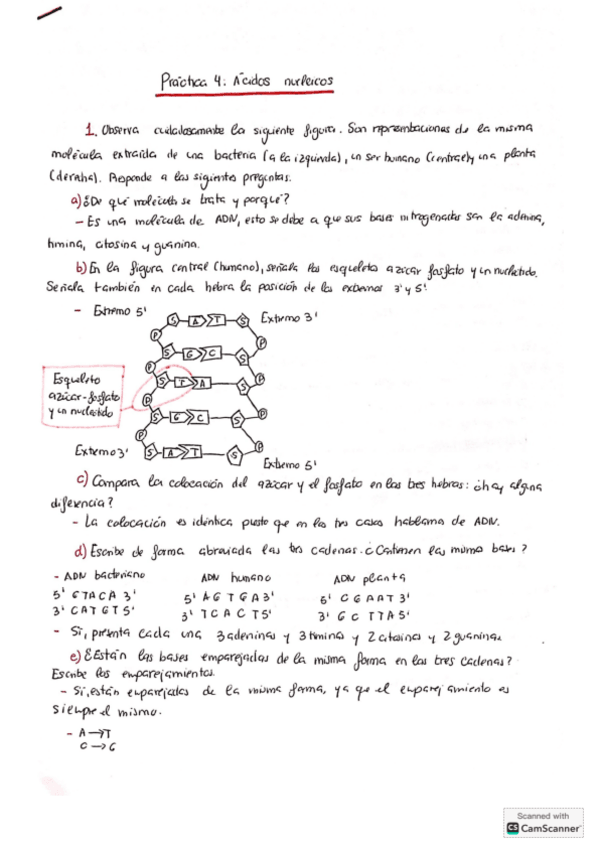 Práctica 4: Ácidos nucleicos
1. Observa cuidadosamente la siguiente figura. Son representaciones de la misma
molécula extraída de una bacteria (a la izquierda), un ser humano (central) y una planta
(derecha). Responde a las siguientes preguntas.
a) ¿De qué molécula se trata y porqué?
- Es una molécula de ADN, esto se debe a que sus bases nitrogenadas son la adenina,
timina, citosina y guanina.
b) En la figura central (humano), señala los esqueletos azúcar fosfato y un nucleótido.
Señala también en cada hebra la posición de los extremos 3' y 5'.
- Extremo 5' Extremo 3'
S A T S
P P
S G C S
P P
S T A S
P P
S G C S
P P
S A T S
Esqueleto
azúcar-fosfato
y un nucleótido
Extremo 3' Extremo 5'
c) Compara la colocación del azúcar y el fosfato en las tres hebras: ¿hay alguna
diferencia?
- La colocación es idéntica puesto que en los tres casos hablamos de ADN.
d) Escribe de forma abreviada las tres cadenas. ¿Contienen las mismas bases?
- ADN bacteriano ADN humano ADN planta
5' GTACA 3' 5' AGTGA 3' 5' CGAAT 3'
3' CATGT 5' 3' TCACT 5' 3' GCTTA 5'
- Sí, presenta cada una 3 adeninas y 3 timina y 2 citosinas y 2 guaninas.
e) ¿Están las bases emparejadas de la misma forma en las tres cadenas?
Escribe los emparejamientos.
- Sí, están emparejadas de la misma forma, ya que el emparejamiento es
siempre el mismo.
- A→T
C→G
Scanned with
CS CamScanner